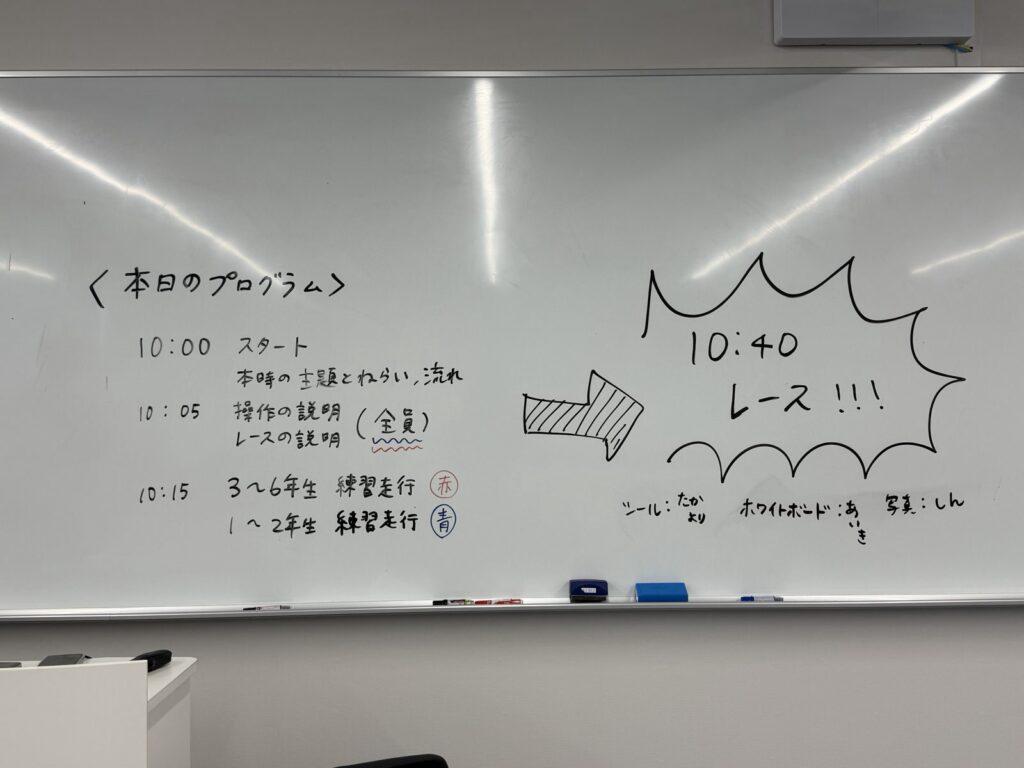 〈本日のプログラム〉
10:00 スタート
本時の主題とねらい、流れ
10:05 操作の説明
レースの説明
(全員)
10:15 3〜6年生 練習走行 赤
1〜2年生 練習走行 青
10:40
レース!!!
シール:たか
より
ホワイトボード:あいき
写真:しん